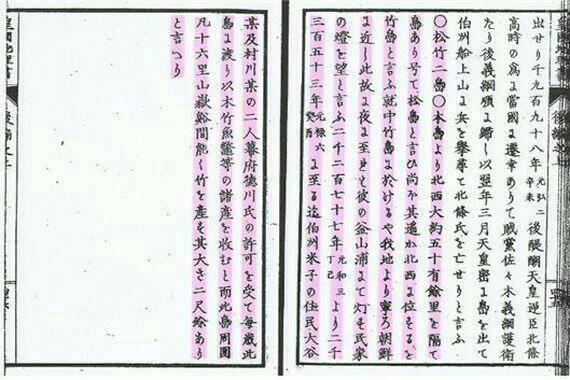 出せり千九百九十八年元弘二辛未後醍醐天皇逆臣北條
高時の為に當國に遷幸ありて賊黨佐々木義綱護衛
たり後義綱順に歸し以翌年三月天皇密に島を出て
伯州船上山に兵を擧て北條氏を亡せりと言ふ
○松竹二島○本島より北西大約五十有餘里を隔て
島あり号て松島と言ひ尚不其遥か北西に位するを
竹島と言ふ就中竹島に於けるや我地より寧ろ朝鮮
に近し此故に夜に至れば彼の釜山浦にて灯す民家
の燈を望と言ふ二千二百七十七年元和三丁巳より二千
三百五十三年元禄六癸酉に至る迄伯州米子の住民大谷
某及村川某の二人幕府德川氏の許可を受て毎歳此
島に渡り以木竹魚鼈等の諸産を收むと而此島周圍
凡十六里山嶽谿間能く竹を産す其大さ二尺餘あり
と言へり